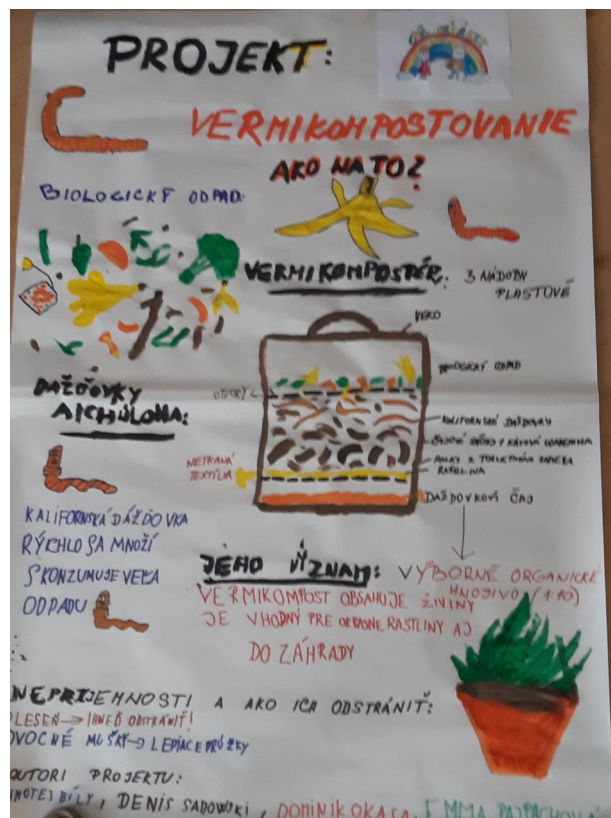 PROJEKT:
VERMIKOMPOSTOVANIE
AKO NA TO?
BIOLOGICKÝ ODPAD
VERMIKOMPOSTÉR:
3 NÁDOBY
PLASTOVÉ
VEKO
BIOLOGICKÝ ODPAD
OTVORY
KALIFORNSKÉ DAŽĎOVKY
KÁVOVÁ
ROLKY Z TOALETNÉHO PAPIERA
RAŠELINA
NETKANÁ
TEXTÍLIA
DAŽĎOVKOVÝ ČAJ
DAŽĎOVKY
A ICH ÚLOHA:
KALIFORNSKÁ DÁŽĎOVKA
RÝCHLO SA MNOŽÍ
SKONZUMUJE VEĽA
ODPADU
JEHO VÝZNAM:
VÝBORNÉ ORGANICKÉ
HNOJIVO (1:10)
VERMIKOMPOST OBSAHUJE ŽIVINY
JE VHODNÝ PRE OKRASNE RASTLINY AJ
DO ZÁHRADY
NEPRIJEMNOSTI A AKO ICH ODSTRÁNIŤ:
PLESEŇ → IHNEĎ ODSTRÁNIŤ!
OVOCNÉ MUŠKY → LEPIACE PRÚŽKY
AUTORI PROJEKTU:
BÍLY, DENIS SADOWSKI, DOMINIK OKASA, EMMA